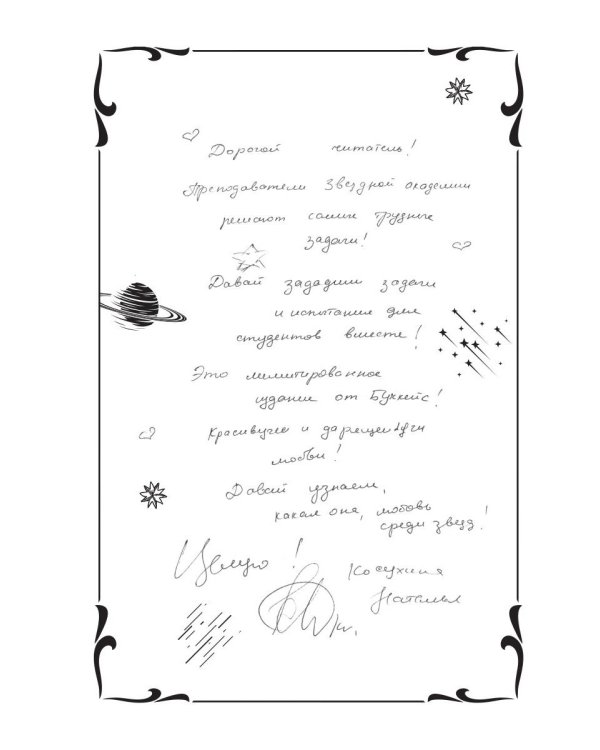 Дорогой читатель!
Преподаватели Звездной академии
решают самые трудные
задачи!
Давай зададим задачи
и испытания для
студентов вместе!
Это лимитированное
издание от Буккейс!
Красивущее и дарящее
любви!
Давай узнаем,
какая она, любовь
среди звезд!
Целую!
Косухина
Наталья